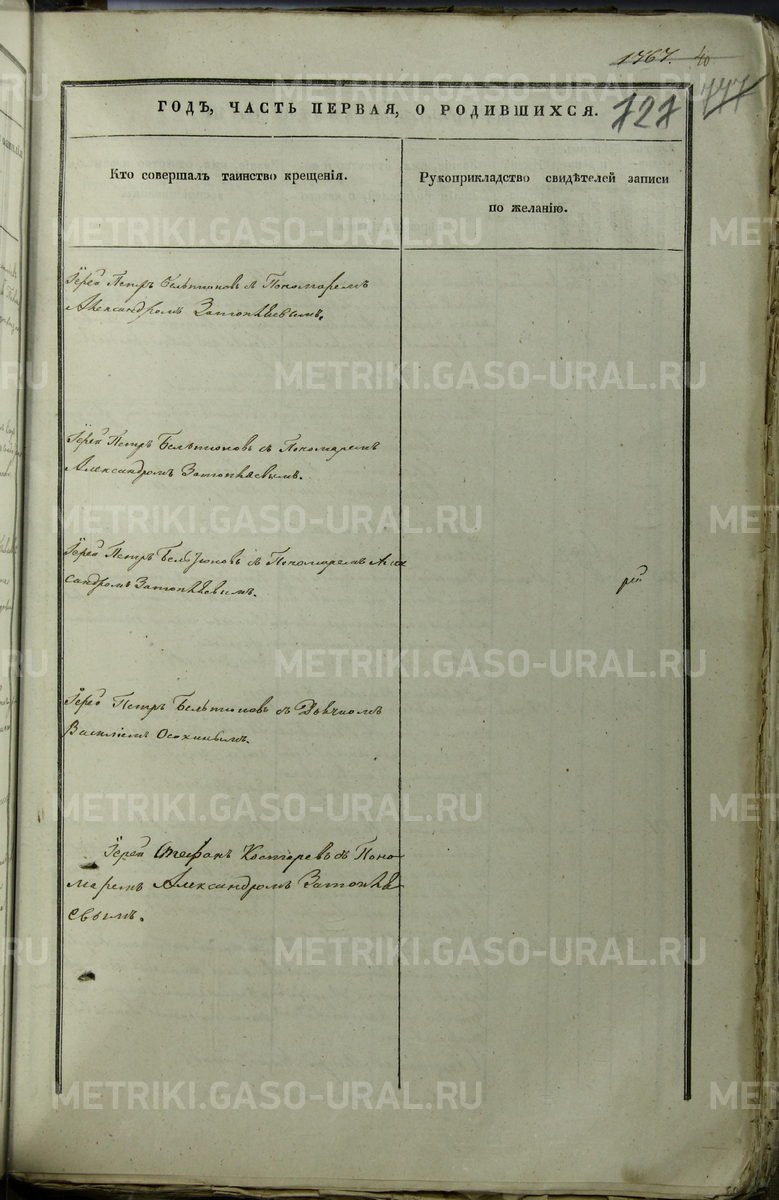 1767. 40
727 777
ГОДЪ, ЧАСТЬ ПЕРВАЯ, О РОДИВШИХСЯ.
Кто совершалъ таинство крещенія.
Рукоприкладство свидѣтелей записи
по желанію.
Іерей Петръ Бельтюковъ съ Пономаремъ
Александромъ Затопляевымъ.
Іерей Петръ Бельтюковъ съ Пономаремъ
Александромъ Затопляевымъ.
Іерей Петръ Бельтюковъ съ Пономаремъ Алек
сандромъ Затопляевымъ.
Іерей Петръ Бельтюковъ съ Дьячкомъ
Василіемъ Осокинымъ.
Іерей Стефанъ Костаревъ съ Поно
маремъ Александромъ Затопля
евымъ.
METRIKI.GASO-URAL.RU